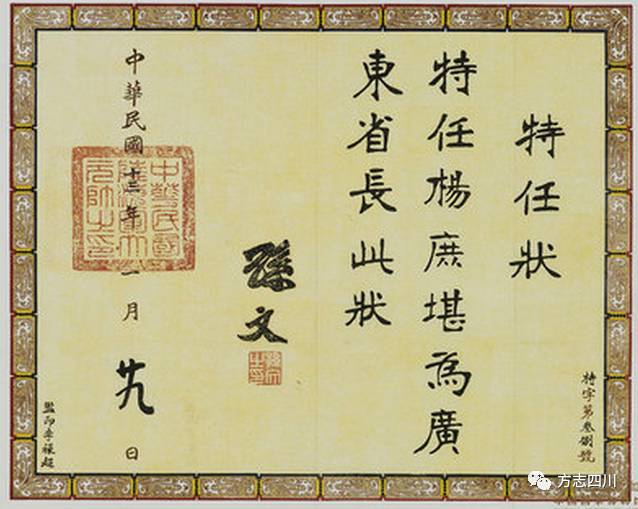 特任狀
特任楊庶堪為廣
東省長此狀
孫文
孫文之印
中華民國十三年一月廿九日
中華民國
陸海軍大
元帥之印
特字第叁捌號
監印李祿超
方志四川